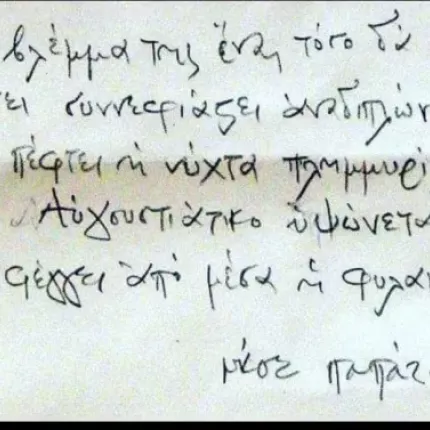 βλέμμα της ἕνα τόσο δά
συννεφιάζει ἀναδιπλών
πέφτει ἡ νύχτα πλημμυρί
Αὐγουστιάτικο ὑψώνετα
φέγγει ἀπό μέσα ἡ φυλα
νίκος παπάζ